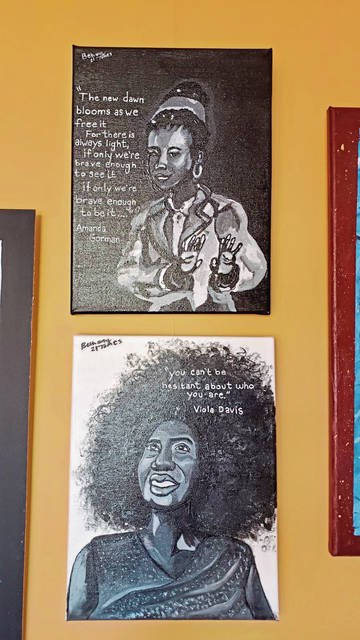 Bethany
"The new dawn
blooms as we
free it
For there is
always light,
if only we're
brave enough
to see it
if only we're
brave enough
to be it..."
Amanda
Gorman
Bethany
"you can't be
hesitant about who
you are."
Viola Davis